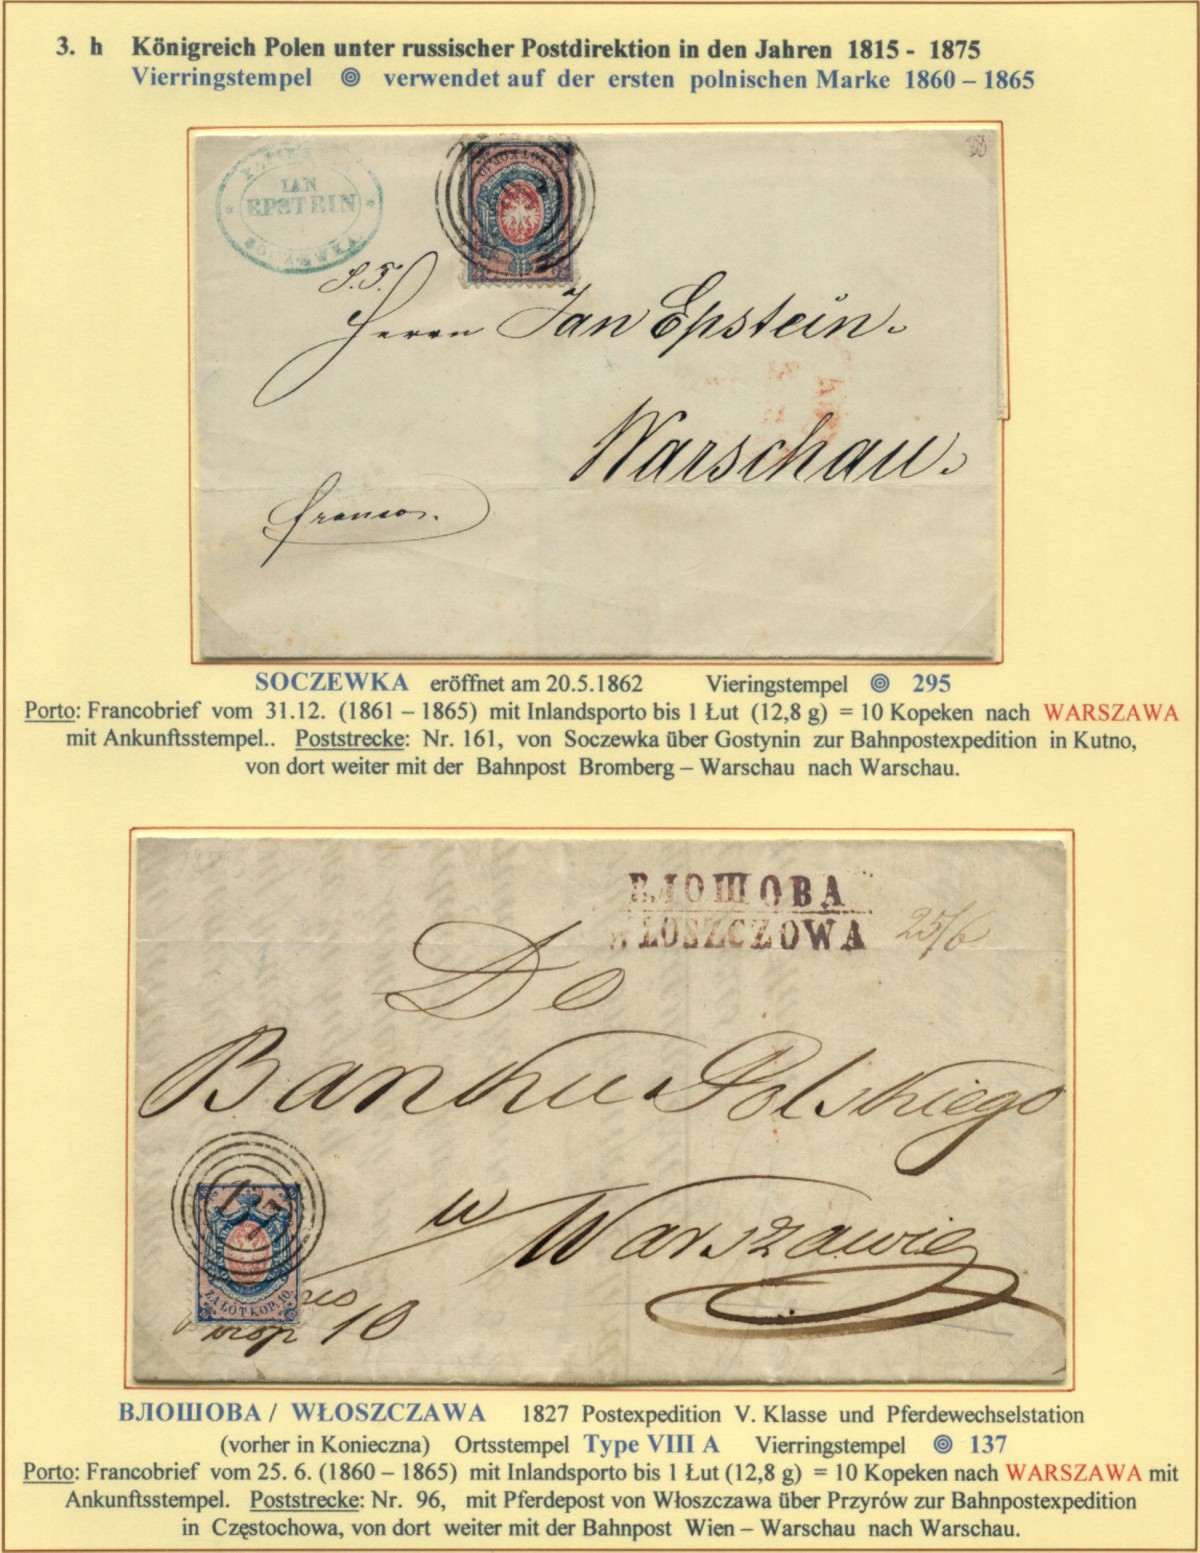 3. h Königreich Polen unter russischer Postdirektion in den Jahren 1815 - 1875
Vierringstempel verwendet auf der ersten polnischen Marke 1860 – 1865
IAN
EPSTEIN
S. T.
Herrn Jan Epstein.
Warschau.
franco.
SOCZEWKA eröffnet am 20.5.1862 Vieringstempel 295
Porto: Francobrief vom 31.12. (1861 – 1865) mit Inlandsporto bis 1 Łut (12,8 g) = 10 Kopeken nach WARSZAWA
mit Ankunftsstempel.. Poststrecke: Nr. 161, von Soczewka über Gostynin zur Bahnpostexpedition in Kutno,
von dort weiter mit der Bahnpost Bromberg – Warschau nach Warschau.
ВЛОШОВА
WŁOSZCZOWA 25/6
Do
Banku Polskiego
w Warszawie
137
ZA ŁÓT KOP. 10.
10
ВЛОШОВА / WŁOSZCZAWA 1827 Postexpedition V. Klasse und Pferdewechselstation
(vorher in Konieczna) Ortsstempel Type VIII A Vierringstempel 137
Porto: Francobrief vom 25. 6. (1860 – 1865) mit Inlandsporto bis 1 Łut (12,8 g) = 10 Kopeken nach WARSZAWA mit
Ankunftsstempel. Poststrecke: Nr. 96, mit Pferdepost von Włoszczawa über Przyrów zur Bahnpostexpedition
in Częstochowa, von dort weiter mit der Bahnpost Wien – Warschau nach Warschau.